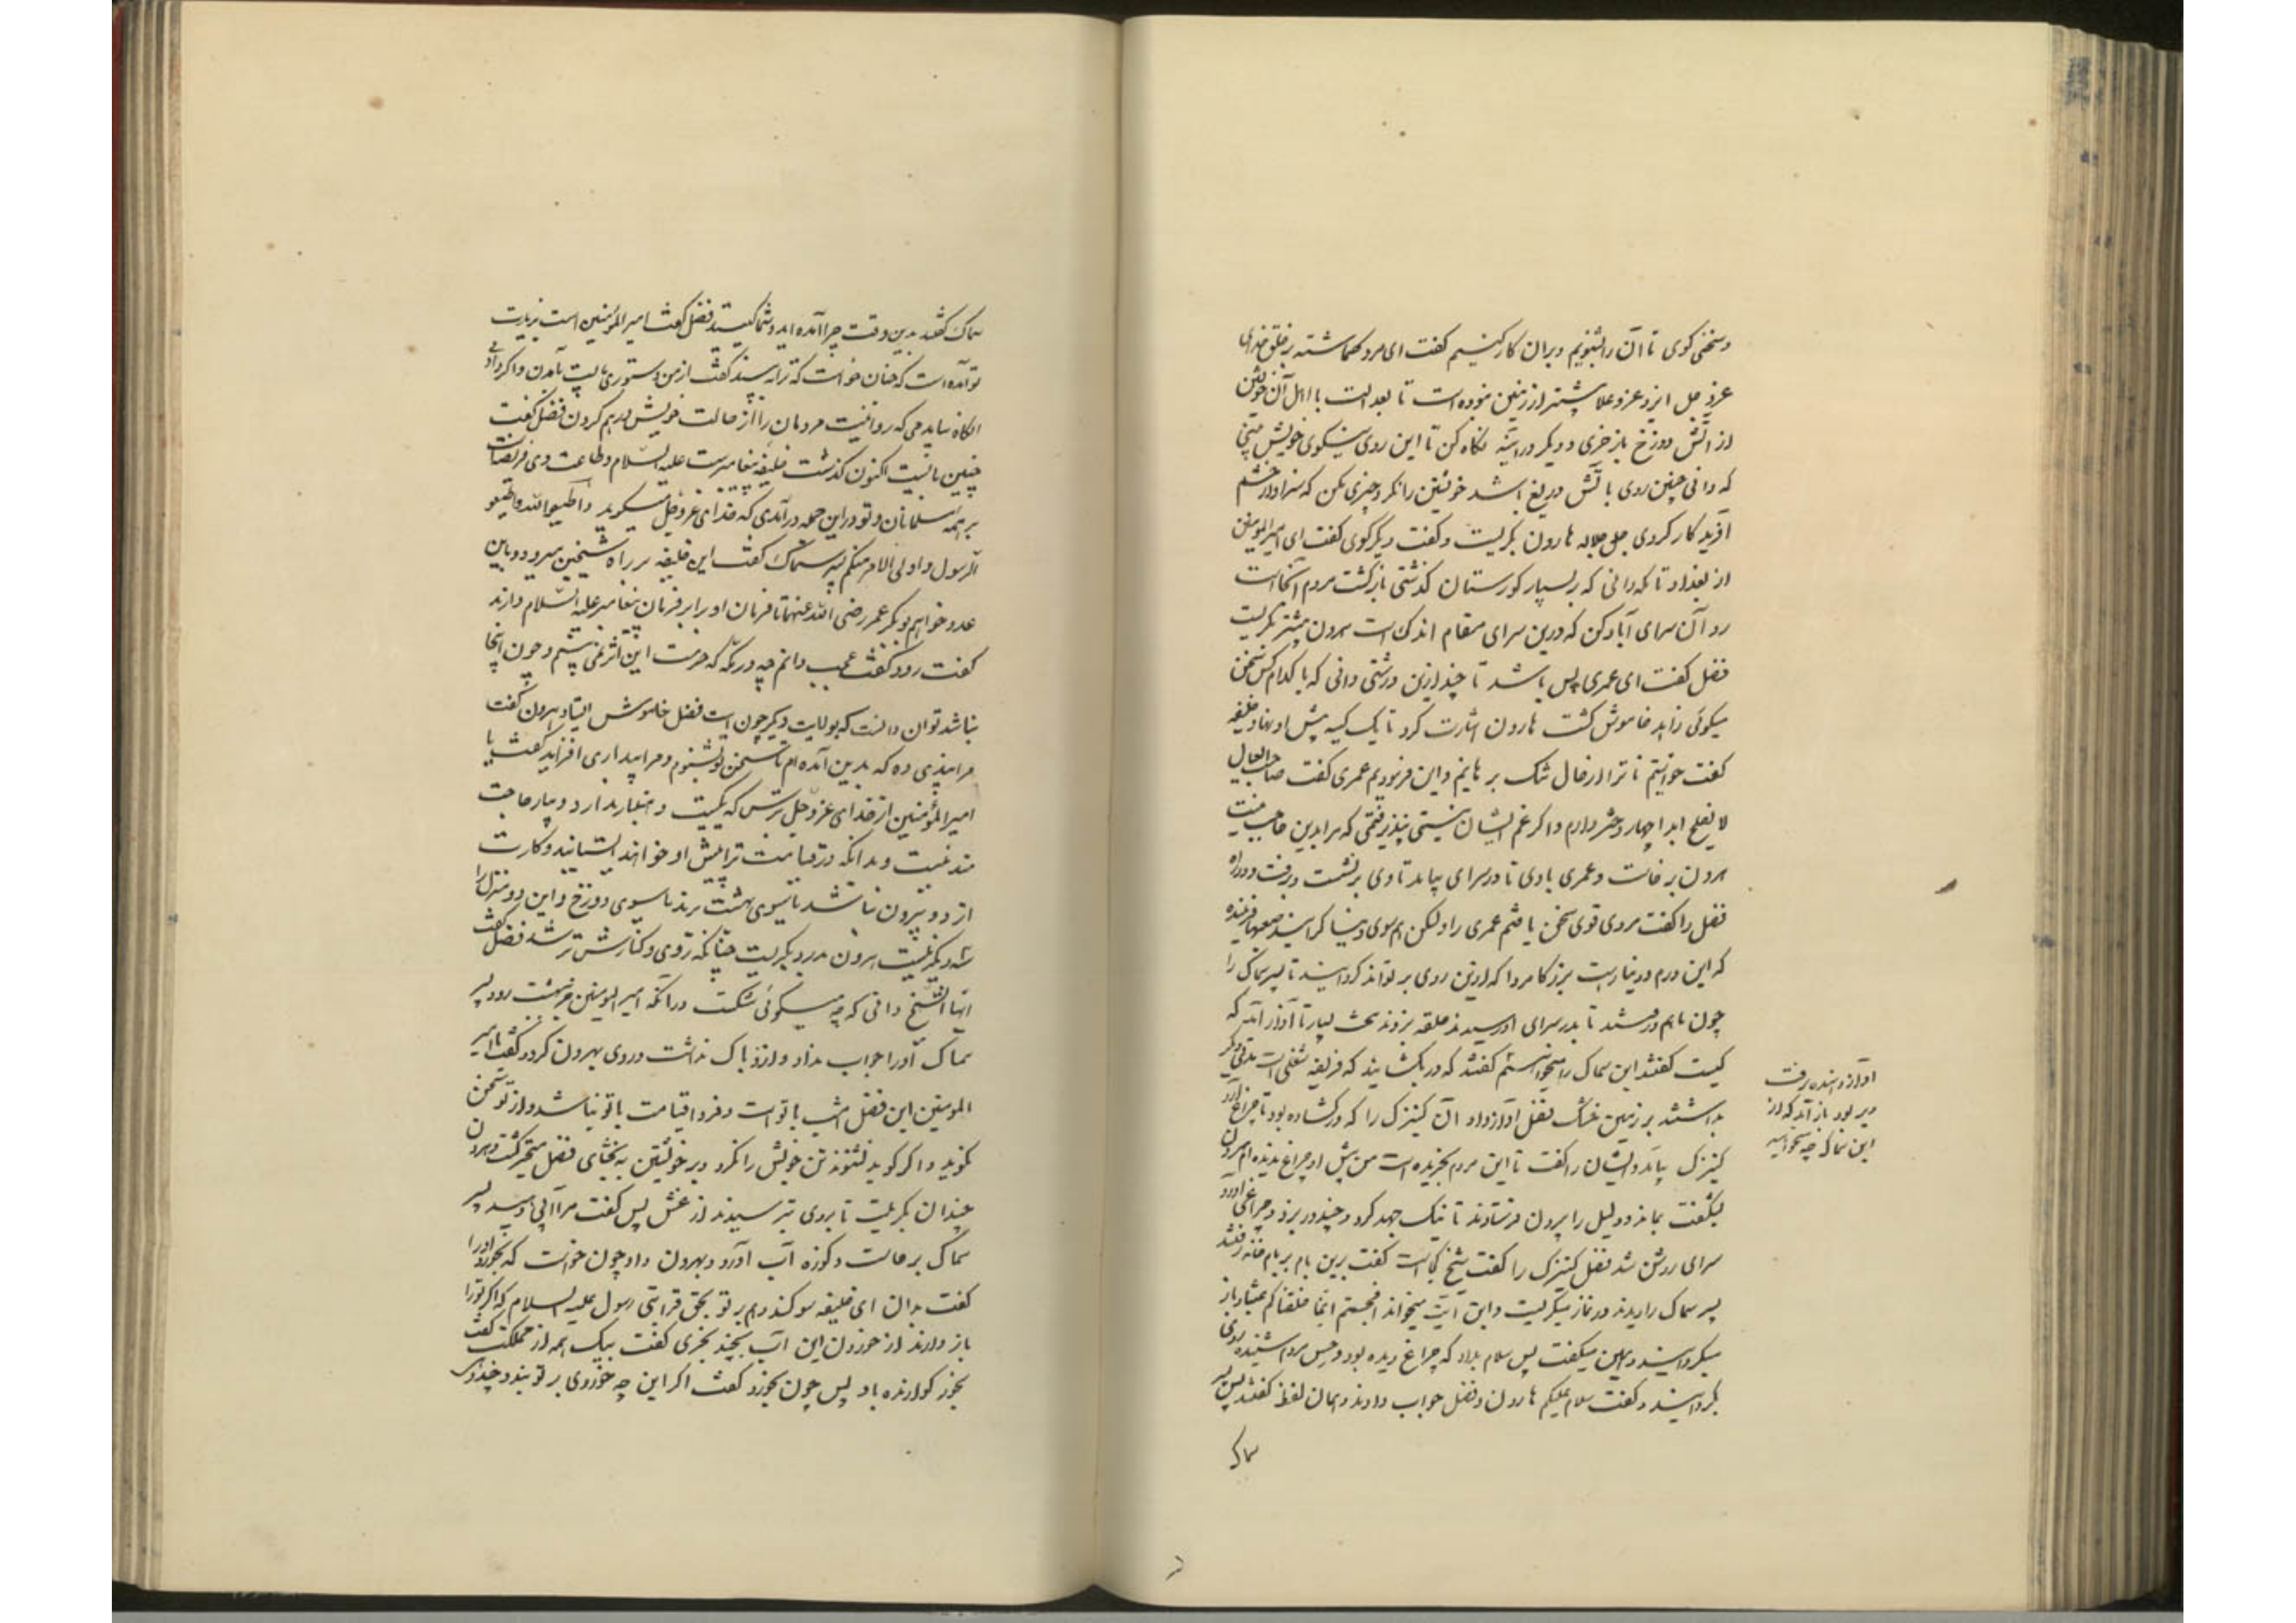 و سخنی کوی تا آن را بشنویم و بران کار کنیم کفت ای مرد کماشته بر خلق خدای
عز و جل ایزد عز و علا بیشتر از زمین نموده است تا بعدالت با اهل آن خویشتن
از آتش دوزخ باز خری و دیکر در آینه نکاه کن تا این روی نیکوی خویش بینی
که دانی چنین روی با تش دریغ باشد خویشتن را نکر و چیزی مکن که سزاوار خشم
آفرید کار کردی جل جلاله هارون بکریست و کفت دیکر کوی کفت ای امیرالمومنین
از بغداد تا مکه دانی که بر بسیار کورستان کذشتی بازکشت مردم آنجا است
رو آن سرای آباد کن که درین سرای مقام اندک است هرون بیشتر بکریست
فضل کفت ای عمری بس باشد تا چند ازین درشتی دانی که با کدام کس سخن
میکوئی زاهد خاموش کشت هارون اشارت کرد تا یک کیسه پیش او نهاد خلیفه
کفت خواستیم تا ترا از حال تنک برهانیم و این فرمودیم عمری کفت صاحب العیال
لا یفلح ابدا چهار دختر دارم و اکر غم ایشان نیستی نپذیرفتمی که مرا بدین حاجت نیست
هرون برخاست و عمری باوی تا در سرای بیامد تا وی برنشست و برفت و در راه
فضل را کفت مردی قوی سخن یافتم عمری را ولکن هم سوی دنیا کرایید صعبا فریبنده
که این درم و دینار است بزرکا مردا که ازین روی بر تواند کردانید تا پسر سماک را
چون یابم و رفتند تا بدر سرای او رسیدند حلقه بزدند سخت بسیار تا آواز آمد که
کیست کفتند ابن سماک را میخواستیم کفتند که در بکشایید که فریضه شغلی است مدتی دیکر
بداشتند بر زمین خشک فضل آواز داد آن کنیزک را که در کشاده بود تا چراغ آرد
کنیزک بیامد و ایشان را کفت تا این مردم بخریده است من پیش او چراغ ندیده ام هرون
بشکفت بماند و دلیل را بیرون فرستادند تا نیک جهد کرد و چند در بزد و چراغی آورد
سرای روشن شد فضل کنیزک را کفت شیخ کجاست کفت برین بام بر بام خانه رفتند
پسر سماک را دیدند در نماز میکریست و این آیت میخواند افحسبتم انما خلقناکم عبثا و باز
میکردانید و همین میکفت پس سلام بداد که چراغ دیده بود و حس مردم شنیده روی
بکردانید و کفت سلام علیکم هارون و فضل جواب دادند و همان لفظ کفتند پس پسر
سماک
آواز دهنده برفت
دیر بود باز آمد که از
ابن سماک چه میخواهید
سماک کفت بدین وقت چرا آمده اید و شما کیستید فضل کفت امیرالمؤمنین است بزیارت
تو آمده است که چنان خواست که ترا ببیند کفت از من دستوری بایست بآمدن و اکر دادمی
آنکاه بیامدی که روا نیست مردمان را از حالت خویش درهم کردن فضل کفت
چنین بایست اکنون کذشت خلیفه پیغامبرست علیه السلام و طاعت وی فریضه است
بر همه مسلمانان و تو در این جمله درآمدی که خدای عز و جل میکوید و اطیعوا الله و اطیعو
الرسول و اولی الامر منکم پسر سماک کفت این خلیفه بر راه شیخین میرود و باین
عدد خواهم بوبکر عمر رضی الله عنهما تا فرمان او برابر فرمان پیغامبر علیه السلام دارند
کفت رود کفت عجب دانم چه در مکه که حرمست این اثر نمی بینم و چون اینجا
نباشد توان دانست که بولایت دیکر چون است فضل خاموش ایستاد هرون کفت
مرا پندی ده که بدین آمده ام تا سخن تو بشنوم و مرا بیداری افزاید کفت یا
امیرالمؤمنین از خدای عز و جل بترس که یکیست و همتا ندارد و بیار حاجت
مند نیست و بدانکه در قیامت ترا پیش او خواهند ایستانید و کارت
از دو بیرون نباشد یا سوی بهشت برند یا سوی دوزخ و این دو منزل را
سه دیکر نیست هرون بدرد بکریست چنانکه روی و کنارش تر شد فضل کفت
ایها الشیخ دانی که چه میکوئی شکست در آنکه امیر المومنین جز ببهشت رود پسر
سماک اورا جواب نداد و ازو باک نداشت و روی بهرون کرد و کفت یا امیر
المومنین این فضل امشب با تواست و فردا قیامت با تو نباشد و از تو سخن
نکوید و اکر کوید نشنوند تن خویش را نکر و بر خویشتن ببخشای فضل متحیر کشت و هرون
چندان بکریست تا بر وی بترسیدند از غش پس کفت مرا آبی دهید پسر
سماک برخاست و کوزه آب آورد و بهرون داد چون خواست که بخورد اورا
کفت بدان ای خلیفه سوکند دهم بر تو بحق قرابتی رسول علیه السلام که اکر تو را
باز دارند از خوردن این آب بچند بخری کفت بیک نیمه از مملکت کفت
بخور کوارنده باد پس چون بخورد کفت اکر این چه خوردی بر تو ببندد چند